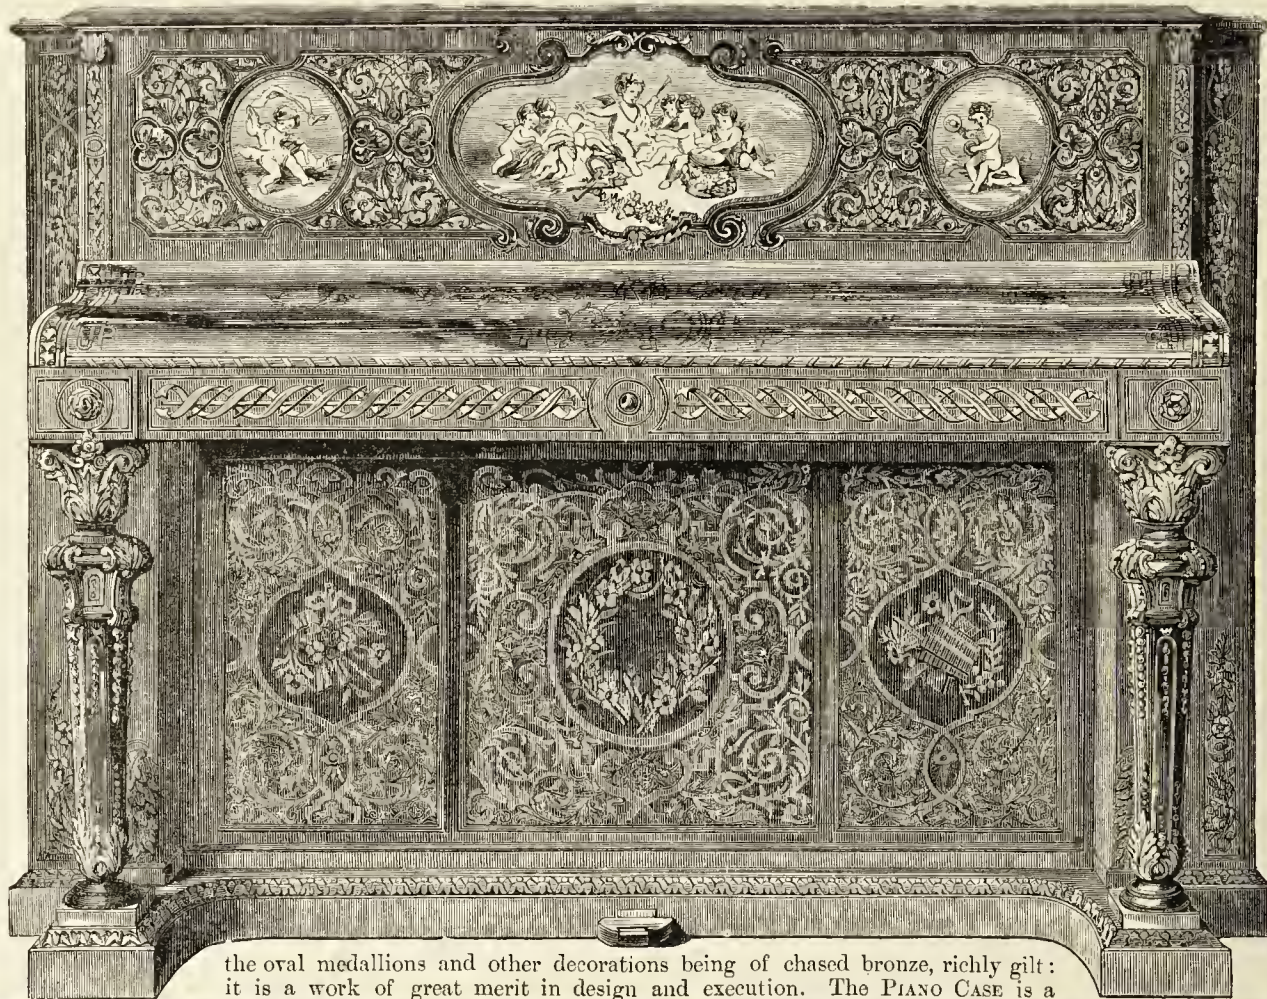 the oval medallions and other decorations being of chased bronze, richly gilt:
it is a work of great merit in design and execution. The PIANO CASE is a